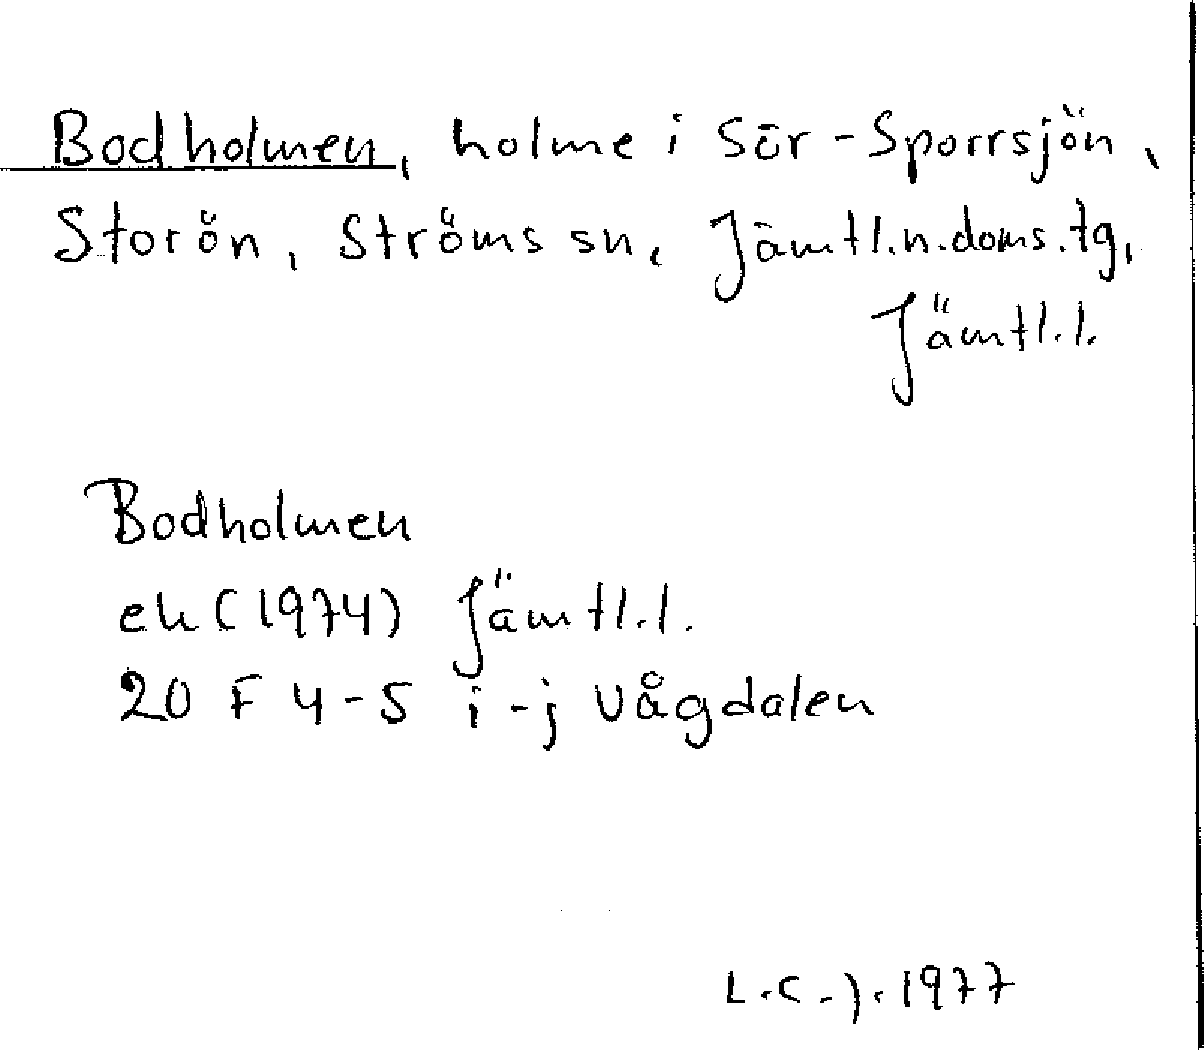 Bodholmen, holme i Sör-Sporrsjön,
Storön, Ströms sn, Jämtl.n.doms.tg,
Jämtl.l.
Bodholmen
ek (1974) Jämtl.l.
20 F 4-5 i-j Vågdalen
L.C.J. 1977